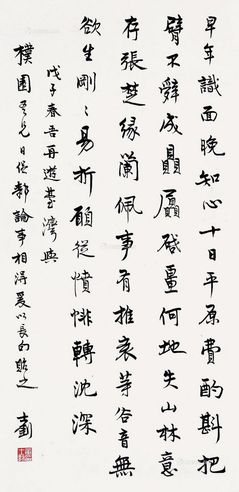 早年識面晚知心十日平原費酌斟把
臂不辭成贔屭啟畺何地失山林意
存張楚緣蘭佩事有推哀等谷音無
欲生剛剛易折願從憤悱轉沈深
戊子春吾再遊臺灣與
樸園吾兄日從鄰論事相得爰以長句贻之